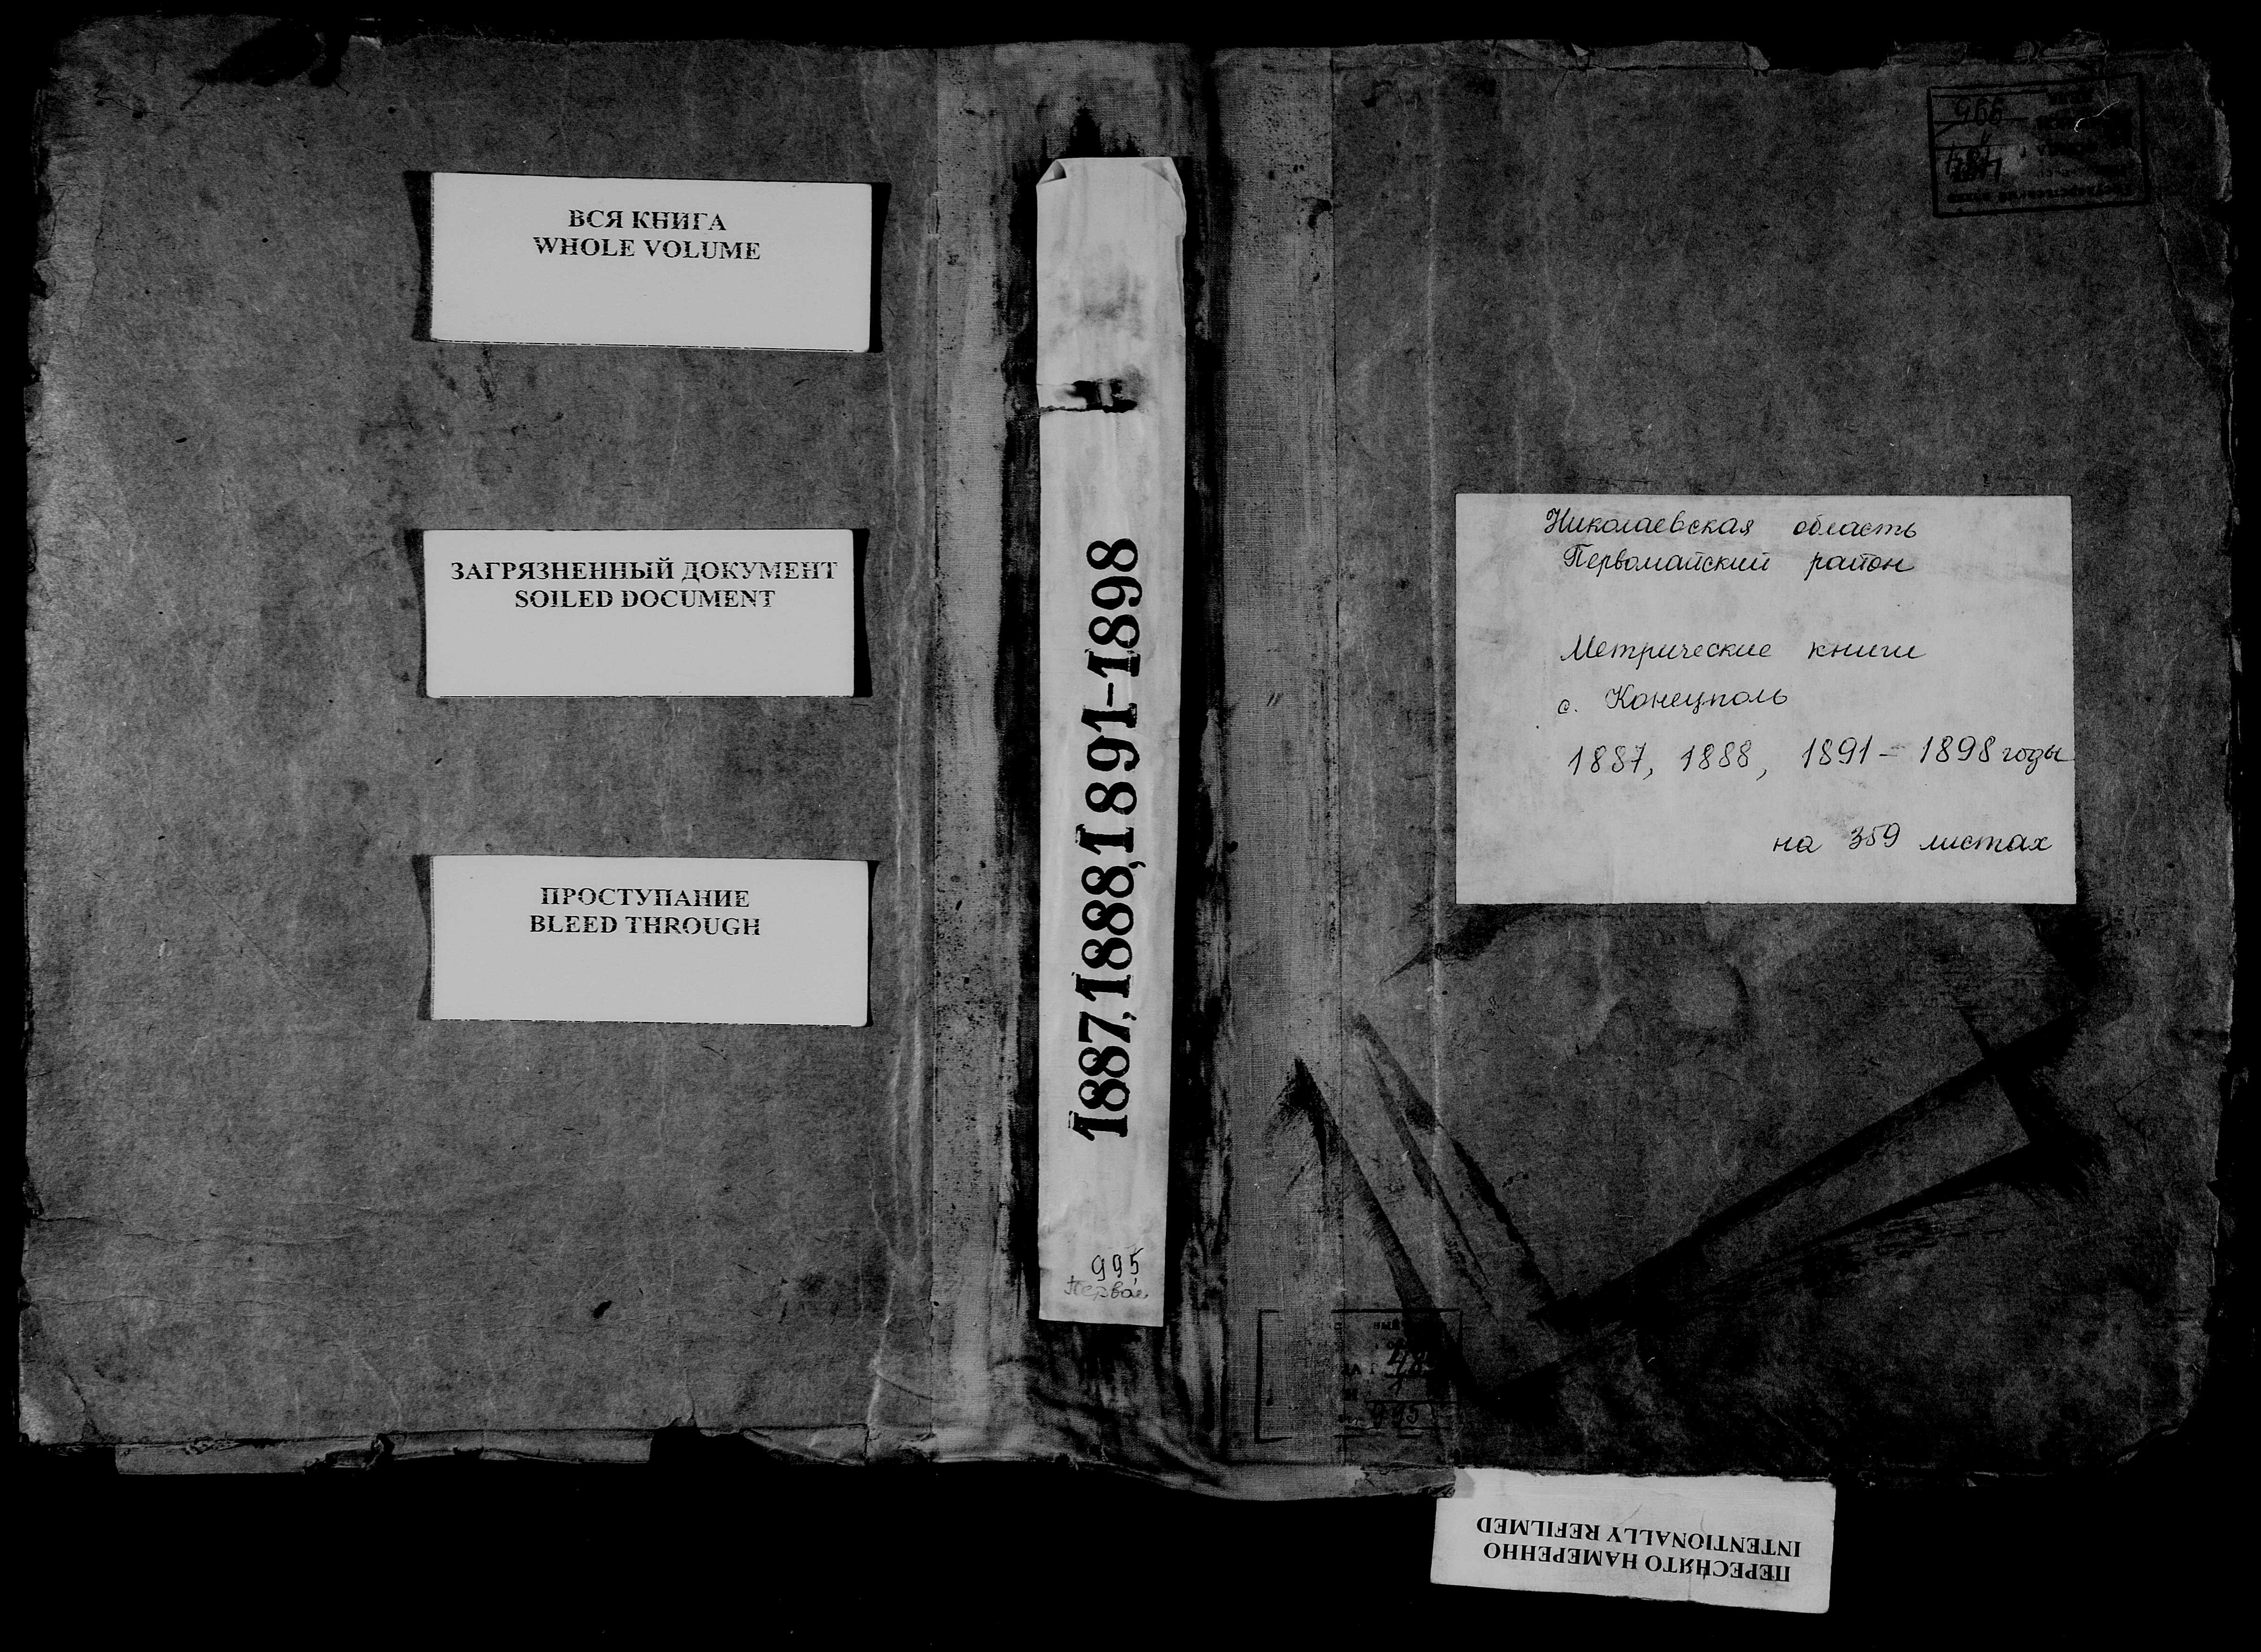 ВСЯ КНИГА
WHOLE VOLUME
ЗАГРЯЗНЕННЫЙ ДОКУМЕНТ
SOILED DOCUMENT
ПРОСТУПАНИЕ
BLEED THROUGH
1887,1888,1891-1898
995
Николаевская область
Первомайский район
Метрические книги
с. Конецполь
1887, 1888, 1891-1898 годы
на 359 листах
966
995
ПЕРЕСНЯТО НАМЕРЕННО
INTENTIONALLY REFILMED